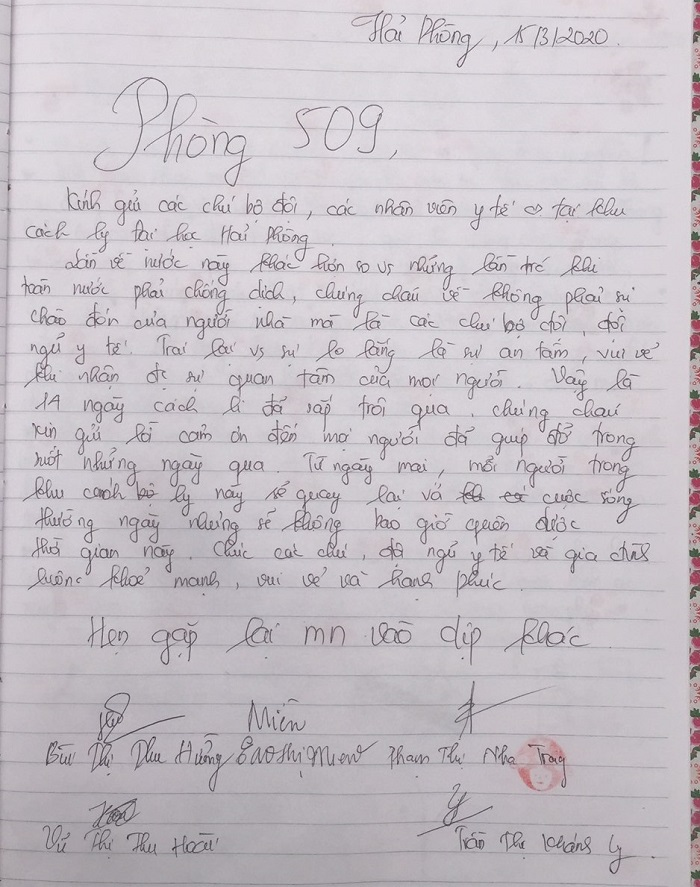 Hải Phòng, 15/3/2020.
Phòng 509,
Kính gửi các chú bộ đội, các nhân viên y tế tại khu
cách ly Đại học Hải Phòng
Lần về nước này khác hơn so vs những lần trc khi
toàn nước phải chống dịch, chúng cháu về không phải sự
chào đón của người nhà mà là các chú bộ đội, đội
ngũ y tế. Trái lại vs sự lo lắng là sự an tâm, vui vẻ
khi nhận đc sự quan tâm của mọi người. Vậy là
14 ngày cách li đã sắp trôi qua, chúng cháu
xin gửi lời cảm ơn đến mọi người đã giúp đỡ trong
suốt những ngày qua. Từ ngày mai, mỗi người trong
khu cách ly này sẽ quay lại vs cuộc sống
thường ngày nhưng sẽ không bao giờ quên được
thời gian này. Chúc các chú, đội ngũ y tế và gia đình
luôn khoẻ mạnh, vui vẻ và hạnh phúc.
Hẹn gặp lại mn vào dịp khác
Miên
Bùi Thị Thu Hường Eaoshimieno Phạm Thị Nha Trang
Vũ Thị Thu Hoài Trần Thị Khánh Ly